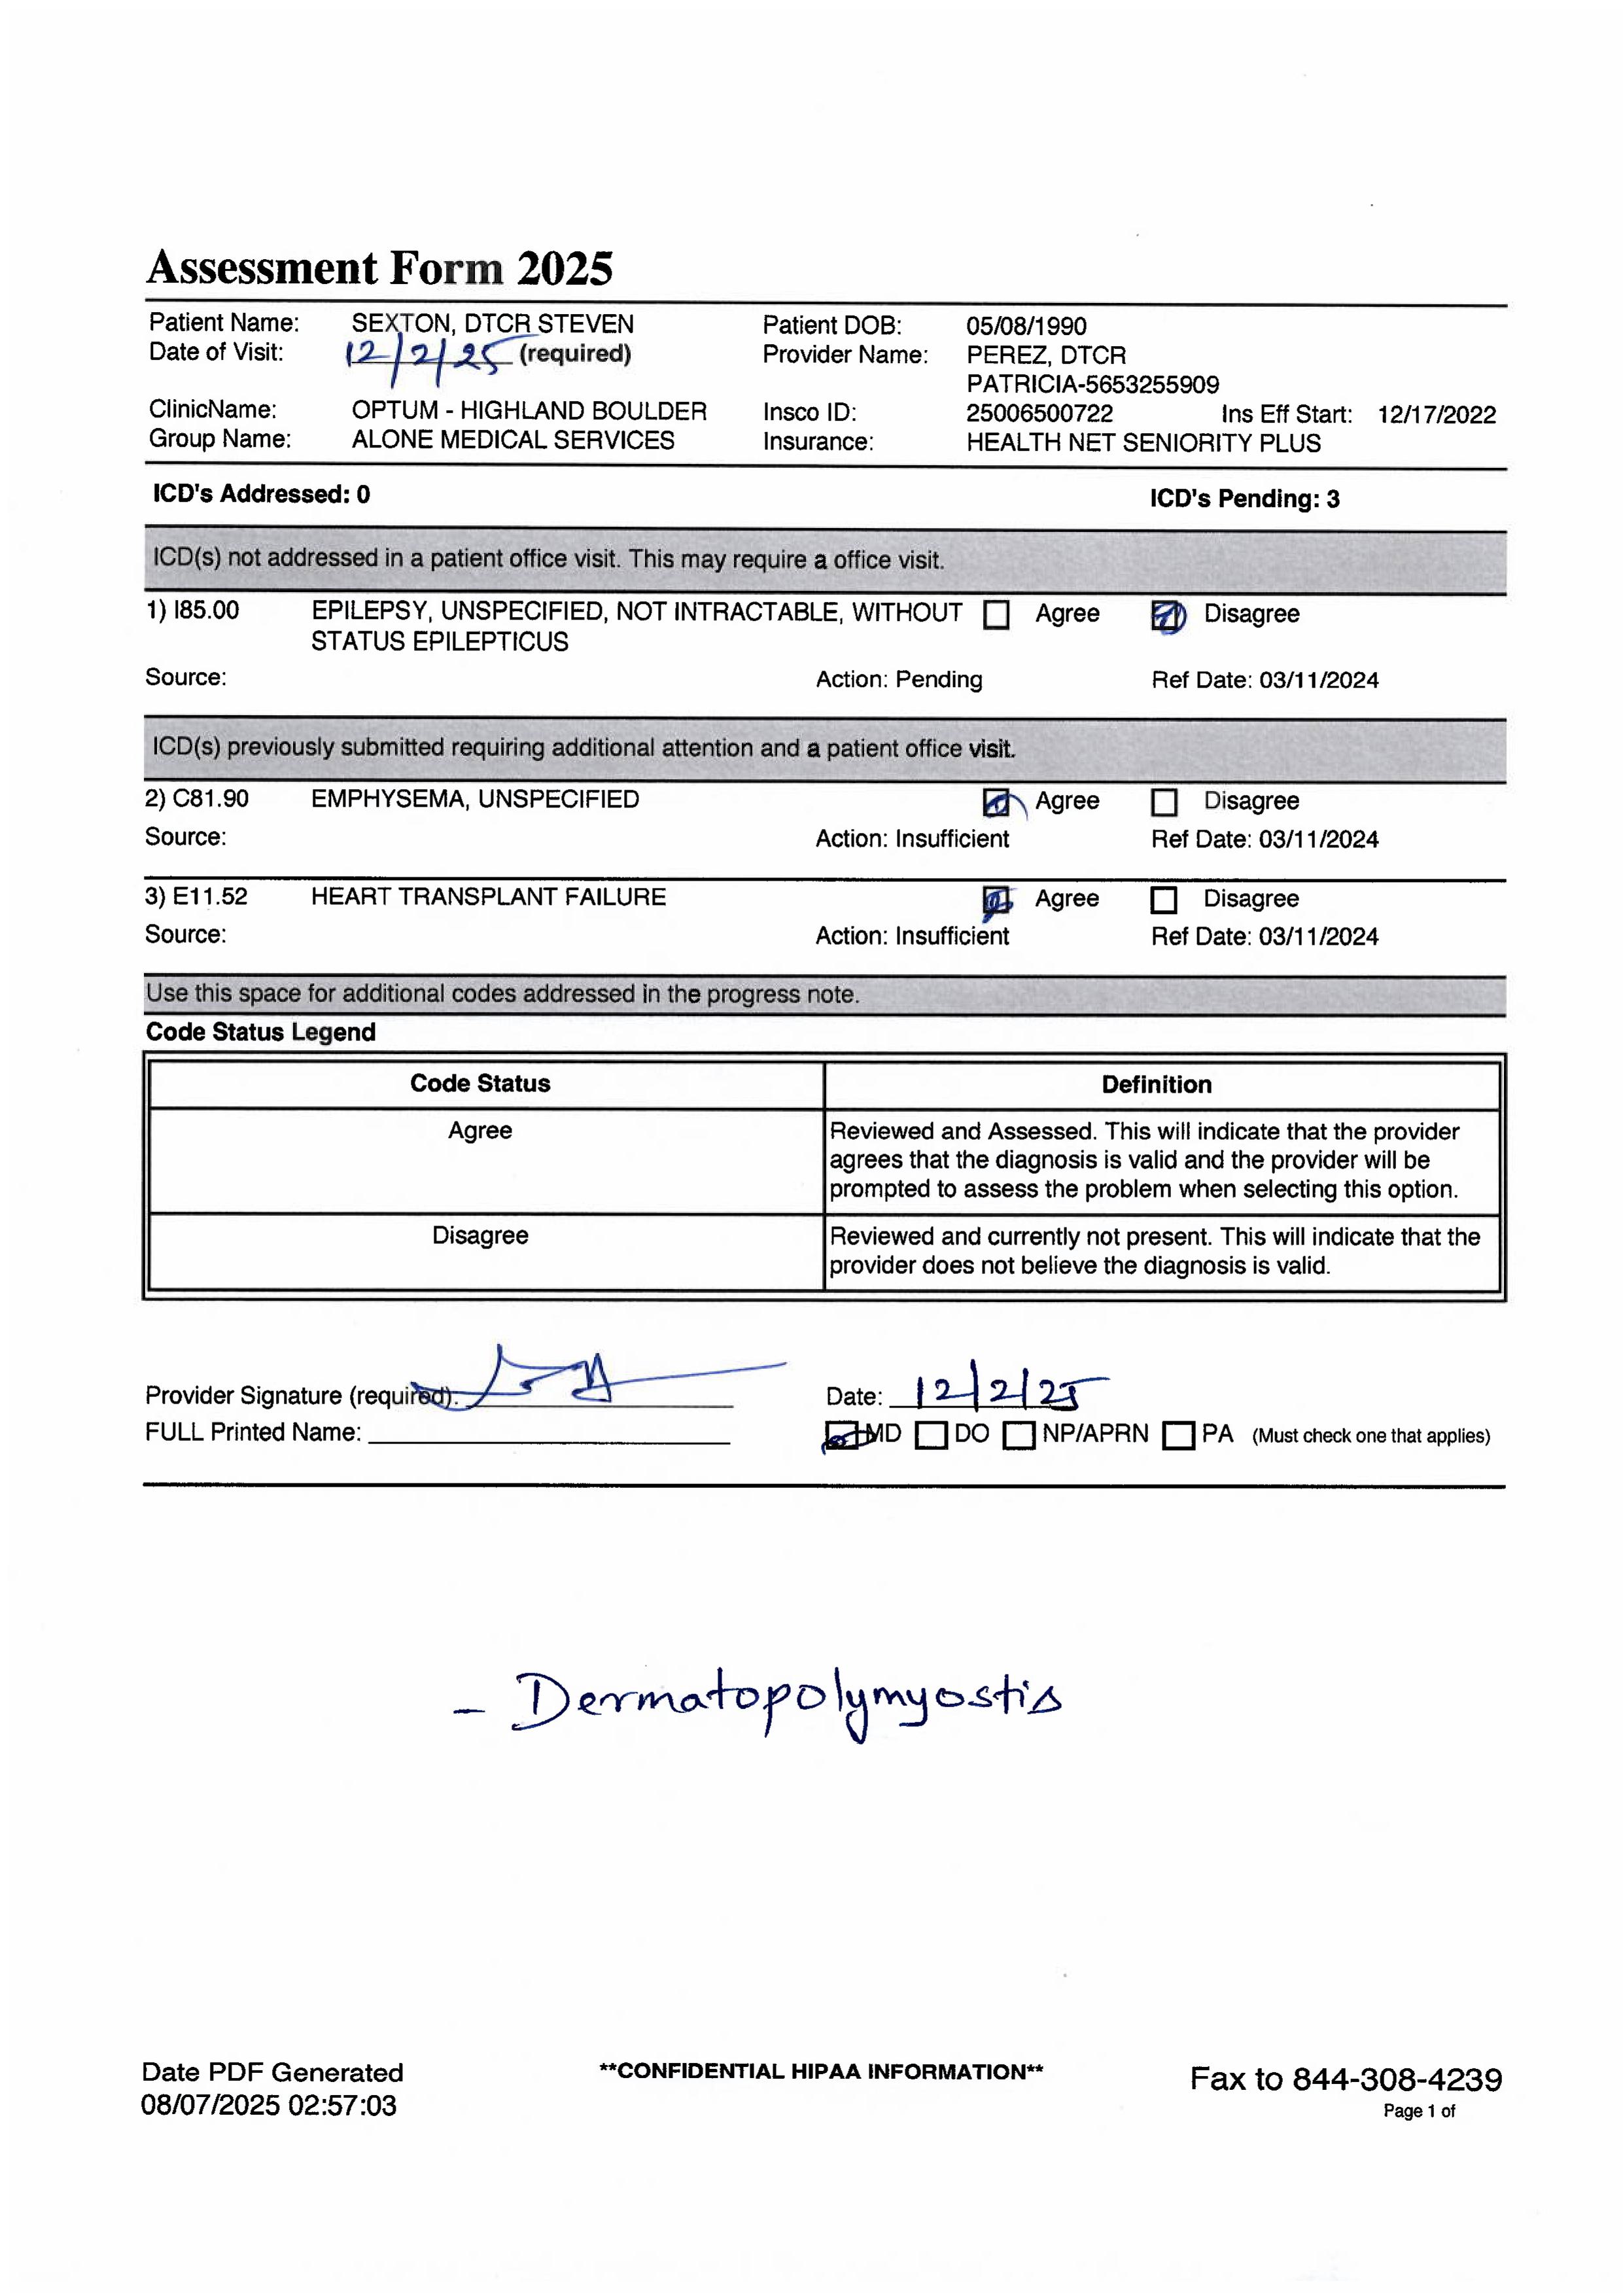 Assessment Form 2025
Patient Name: SEXTON, DTCR STEVEN Patient DOB: 05/08/1990
Date of Visit: 12/2/25 (required) Provider Name: PEREZ, DTCR
PATRICIA-5653255909
ClinicName: OPTUM - HIGHLAND BOULDER Insco ID: 25006500722 Ins Eff Start: 12/17/2022
Group Name: ALONE MEDICAL SERVICES Insurance: HEALTH NET SENIORITY PLUS
ICD's Addressed: 0 ICD's Pending: 3
ICD(s) not addressed in a patient office visit. This may require a office visit.
1) I85.00 EPILEPSY, UNSPECIFIED, NOT INTRACTABLE, WITHOUT Agree Disagree
STATUS EPILEPTICUS
Source: Action: Pending Ref Date: 03/11/2024
ICD(s) previously submitted requiring additional attention and a patient office visit.
2) C81.90 EMPHYSEMA, UNSPECIFIED Agree Disagree
Source: Action: Insufficient Ref Date: 03/11/2024
3) E11.52 HEART TRANSPLANT FAILURE Agree Disagree
Source: Action: Insufficient Ref Date: 03/11/2024
Use this space for additional codes addressed in the progress note.
Code Status Legend
Code Status Definition
Agree Reviewed and Assessed. This will indicate that the provider
agrees that the diagnosis is valid and the provider will be
prompted to assess the problem when selecting this option.
Disagree Reviewed and currently not present. This will indicate that the
provider does not believe the diagnosis is valid.
Provider Signature (required): Date: 12/2/25
FULL Printed Name: MD DO NP/APRN PA (Must check one that applies)
- Dermatopolymyostis
Date PDF Generated **CONFIDENTIAL HIPAA INFORMATION** Fax to 844-308-4239
08/07/2025 02:57:03 Page 1 of